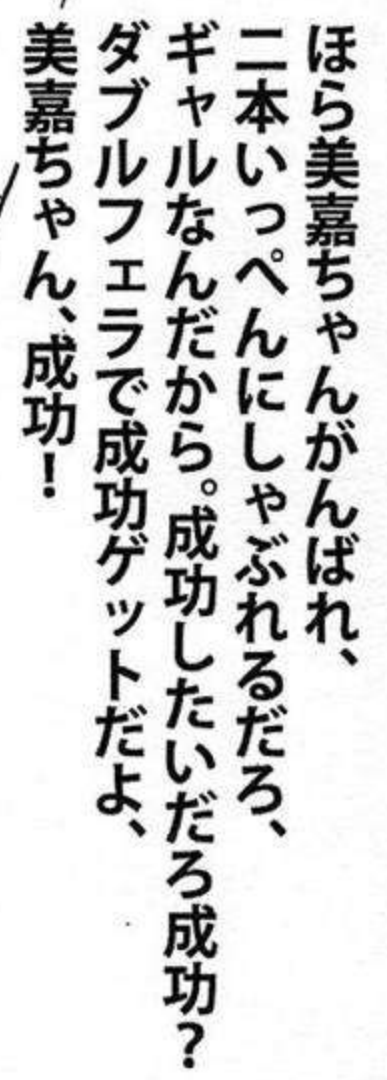 ほら美嘉ちゃんがんばれ、
二本いっぺんにしゃぶれるだろ、
ギャルなんだから。成功したいだろ成功？
ダブルフェラで成功ゲットだよ、
美嘉ちゃん、成功！